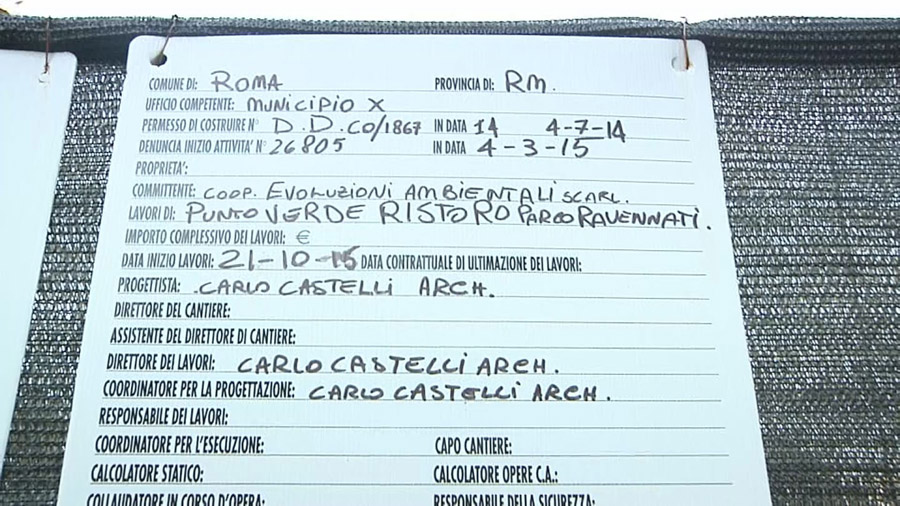 COMUNE DI: ROMA PROVINCIA DI: RM.
UFFICIO COMPETENTE: MUNICIPIO X
PERMESSO DI COSTRUIRE N° D.D.CO/1867 IN DATA 14 4-7-14
DENUNCIA INIZIO ATTIVITA' N° 26805 IN DATA 4-3-15
PROPRIETA':
COMMITTENTE: COOP. EVOLUZIONI AMBIENTALI SCARL.
LAVORI DI: PUNTO VERDE RISTORO PARCO RAVENNATI.
IMPORTO COMPLESSIVO DEI LAVORI: €
DATA INIZIO LAVORI: 21-10-15 DATA CONTRATTUALE DI ULTIMAZIONE DEI LAVORI:
PROGETTISTA: CARLO CASTELLI ARCH.
DIRETTORE DEL CANTIERE:
ASSISTENTE DEL DIRETTORE DI CANTIERE:
DIRETTORE DEI LAVORI: CARLO CASTELLI ARCH.
COORDINATORE PER LA PROGETTAZIONE: CARLO CASTELLI ARCH.
RESPONSABILE DEI LAVORI:
COORDINATORE PER L'ESECUZIONE: CAPO CANTIERE:
CALCOLATORE STATICO: CALCOLATORE OPERE C.A.:
COLLAUDATORE IN CORSO D'OPERA: RESPONSABILE DELLA SICUREZZA: